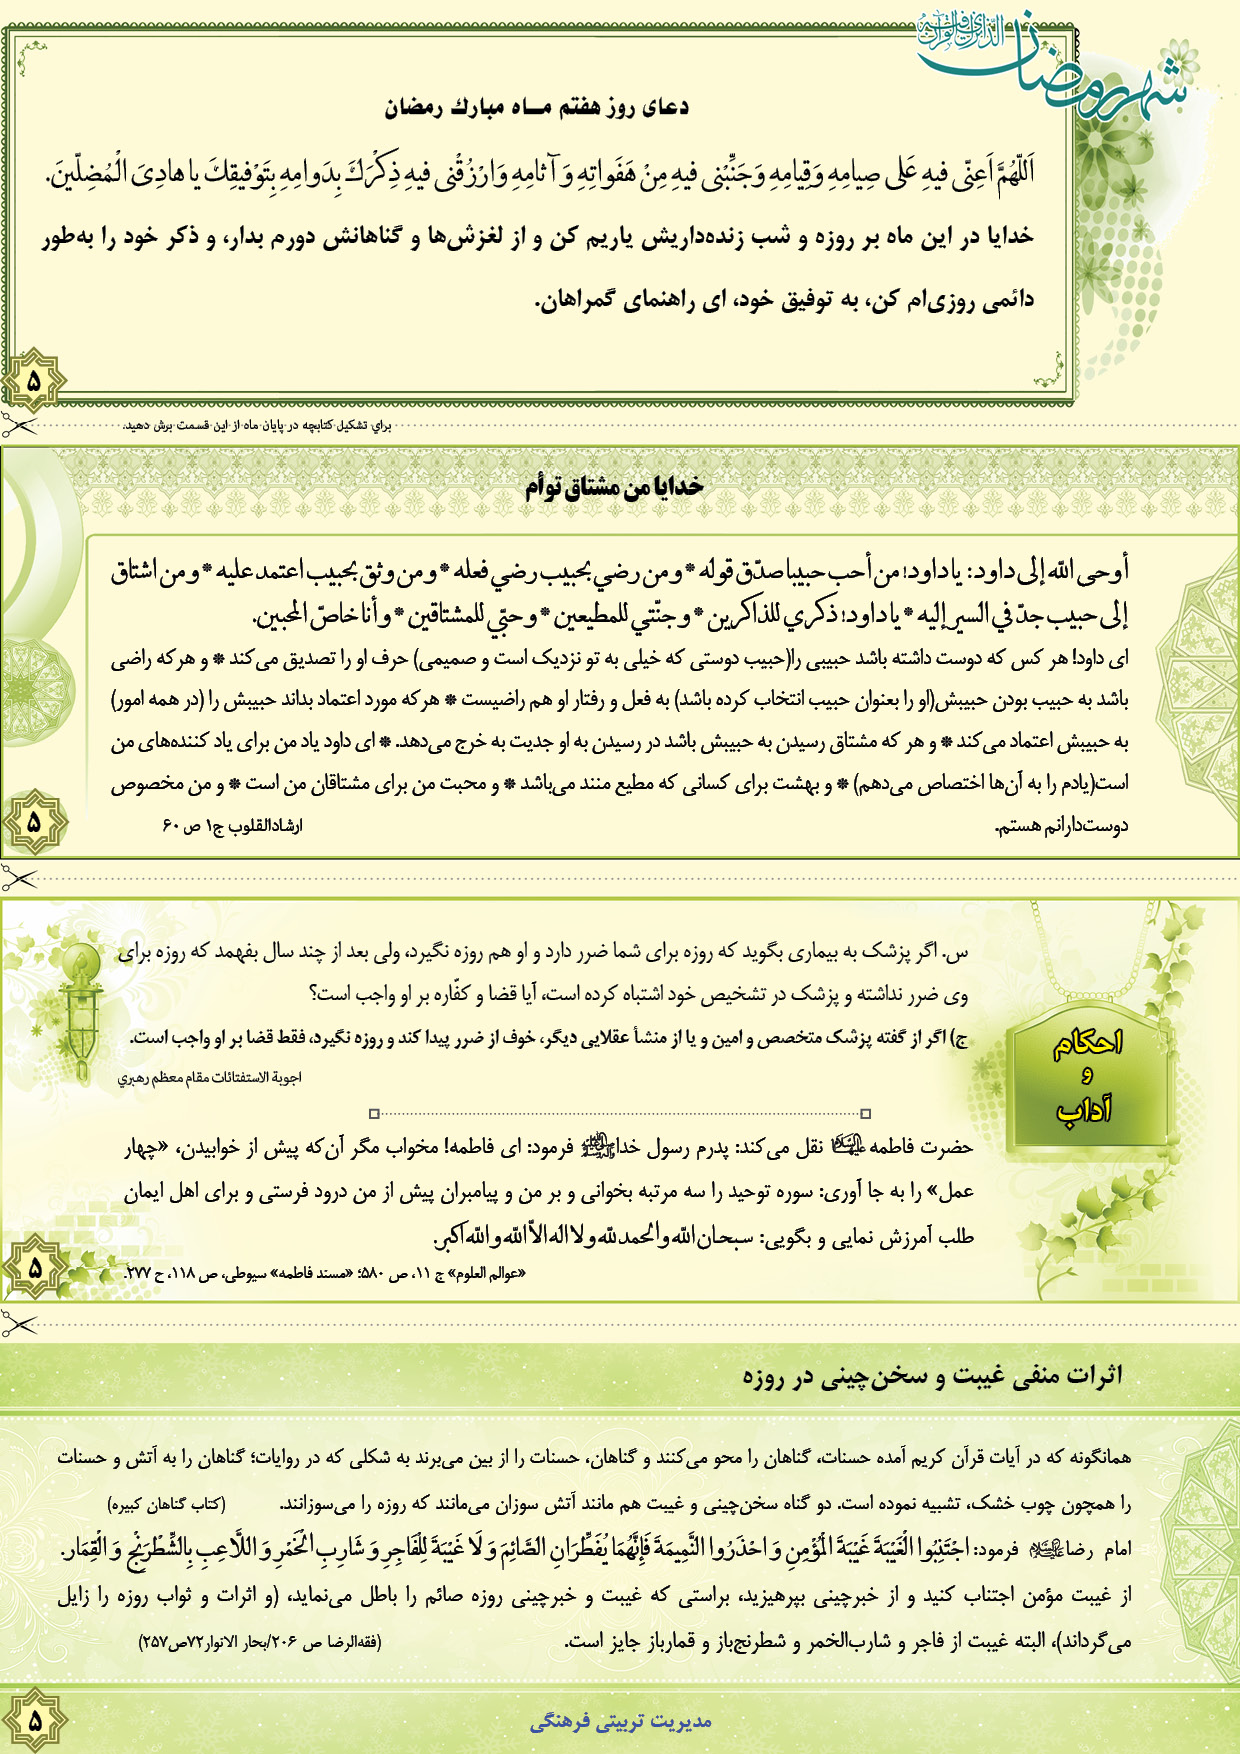 شهر رمضان الذی انزل فیه القرآن
دعای روز هفتم مـاه مبارك رمضان
اَللّهُمَّ اَعِنّی فیهِ عَلی صِیامِهِ وَقِیامِهِ وَجَنِّبْنی فیهِ مِنْ هَفَواتِهِ وَ آثامِهِ وَارْزُقْنی فیهِ ذِکْرَكَ بِدَوامِهِ بِتَوْفیقِكَ یا هادِیَ الْمُضِلّینَ.
خدایا در این ماه بر روزه و شب زنده‌داریش یاریم کن و از لغزش‌ها و گناهانش دورم بدار، و ذکر خود را به‌طور
دائمی روزی‌ام کن، به توفیق خود، ای راهنمای گمراهان.
۵
براي تشکیل کتابچه در پایان ماه از این قسمت برش دهید.
خدایا من مشتاق توأم
أوحی الله إلی داود: یا داود؛ من أحب حبیبا صدّق قوله * و من رضي بحبیب رضي فعله * و من وثق بحبیب اعتمد علیه * و من اشتاق
إلی حبیب جدّ في السیر إلیه * یا داود؛ ذکري للذاکرین * و جنّتي للمطیعین * و حبّي للمشتاقین * و أنا خاصّ المحبین.
ای داود! هر کس که دوست داشته باشد حبیبی را(حبیب دوستی که خیلی به تو نزدیک است و صمیمی) حرف او را تصدیق می‌کند * و هرکه راضی
باشد به حبیب بودن حبیبش(او را بعنوان حبیب انتخاب کرده باشد) به فعل و رفتار او هم راضیست * هرکه مورد اعتماد بداند حبیبش را (در همه امور)
به حبیبش اعتماد می‌کند * و هر که مشتاق رسیدن به حبیبش باشد در رسیدن به او جدیت به خرج می‌دهد. * ای داود یاد من برای یاد کننده‌های من
است(یادم را به آن‌ها اختصاص می‌دهم) * و بهشت برای کسانی که مطیع منند می‌باشد * و محبت من برای مشتاقان من است * و من مخصوص
دوست‌دارانم هستم. ارشادالقلوب ج۱ ص ۶۰
۵
س. اگر پزشک به بیماری بگوید که روزه برای شما ضرر دارد و او هم روزه نگیرد، ولی بعد از چند سال بفهمد که روزه برای
وی ضرر نداشته و پزشک در تشخیص خود اشتباه کرده است، آیا قضا و کفّاره بر او واجب است؟
ج) اگر از گفته پزشک متخصص و امین و یا از منشأ عقلایی دیگر، خوف از ضرر پیدا کند و روزه نگیرد، فقط قضا بر او واجب است.
اجوبة الاستفتائات مقام معظم رهبري
احکام
و
آداب
حضرت فاطمه علیهاالسلام نقل می‌کند: پدرم رسول خدا صلی‌الله‌علیه‌وآله فرمود: ای فاطمه! مخواب مگر آن‌که پیش از خوابیدن، «چهار
عمل» را به جا آوری: سوره توحید را سه مرتبه بخوانی و بر من و پیامبران پیش از من درود فرستی و برای اهل ایمان
طلب آمرزش نمایی و بگویی: سبحان الله و الحمد لله و لا اله الاّ الله و الله اکبر.
«عوالم العلوم» ج ۱۱، ص ۵۸۰؛ «مسند فاطمه» سیوطی، ص ۱۱۸، ح ۲۷۷.
۵
اثرات منفی غیبت و سخن‌چینی در روزه
همانگونه که در آیات قرآن کریم آمده حسنات، گناهان را محو می‌کنند و گناهان، حسنات را از بین می‌برند به شکلی که در روایات؛ گناهان را به آتش و حسنات
را همچون چوب خشک، تشبیه نموده است. دو گناه سخن‌چینی و غیبت هم مانند آتش سوزان می‌مانند که روزه را می‌سوزانند. (کتاب گناهان کبیره)
امام رضا علیه‌السلام فرمود: اجْتَنِبُوا الْغَیْبَةَ غَیْبَةَ الْمُؤْمِنِ وَ احْذَرُوا النَّمِیمَةَ فَإِنَّهُمَا یُفَطِّرَانِ الصَّائِمَ وَ لَا غَیْبَةَ لِلْفَاجِرِ وَ شَارِبِ الْخَمْرِ وَ اللَّاعِبِ بِالشِّطْرَنْجِ وَ الْقِمَارِ.
از غیبت مؤمن اجتناب کنید و از خبرچینی بپرهیزید، براستی که غیبت و خبرچینی روزه صائم را باطل می‌نماید، (و اثرات و ثواب روزه را زایل
می‌گرداند)، البته غیبت از فاجر و شارب‌الخمر و شطرنج‌باز و قمارباز جایز است. (فقه‌الرضا ص ۲۰۶/بحار الانوار۷۲ص۲۵۷)
۵
مدیریت تربیتی فرهنگی